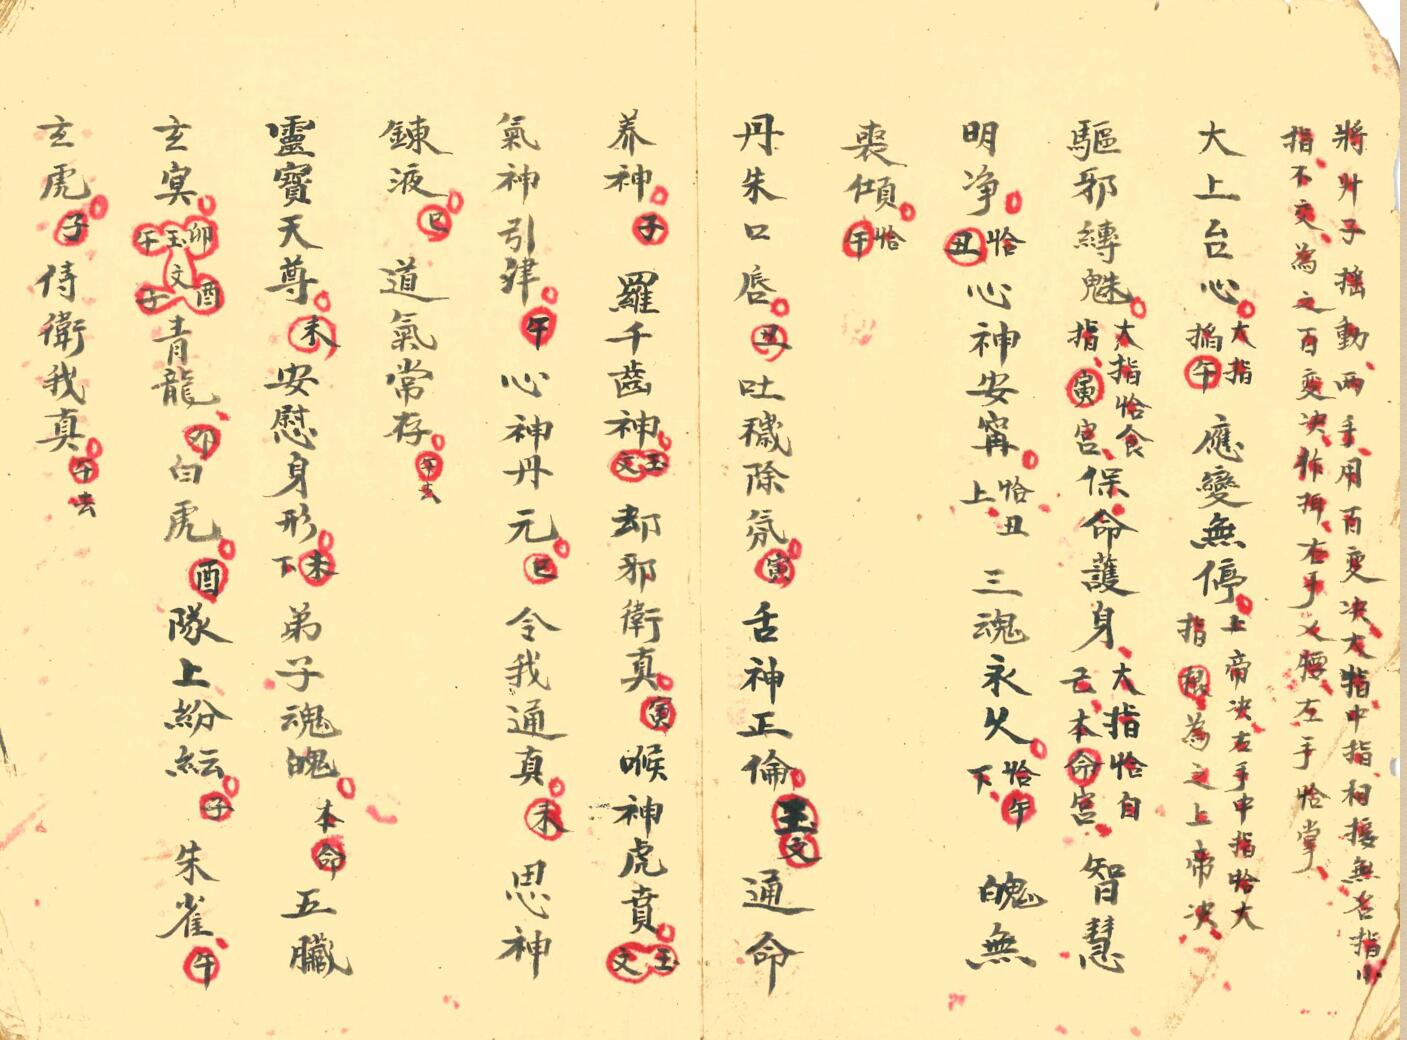 將爿子搖動兩手用百變决大指中指相接無名指小
指不交為之百變决作揖右手乂腰左手恰掌
大上台心大指搯午應變無停上帝决右手中指恰大指根為之上帝决
驅邪縳魅大指恰食指寅宮保命護身大指恰自己本命宮智慧
明净恰丑心神安寗恰丑上三魂永乆恰午下魄無
喪傾恰午
丹朱口唇丑吐穢除氛寅舌神正倫玉文通命
养神子羅千齒神玉文却邪衛真寅喉神虎賁玉文
氣神引肂午心神丹元巳令我通真未思神
鍊液巳道氣常存午去
靈寳天尊未安慰身形未下弟子魂魄本命五臟
玄冥卯酉玉文午子青龍卯白虎酉隊上紛紜子朱雀午
玄虎子侍衛我真午去